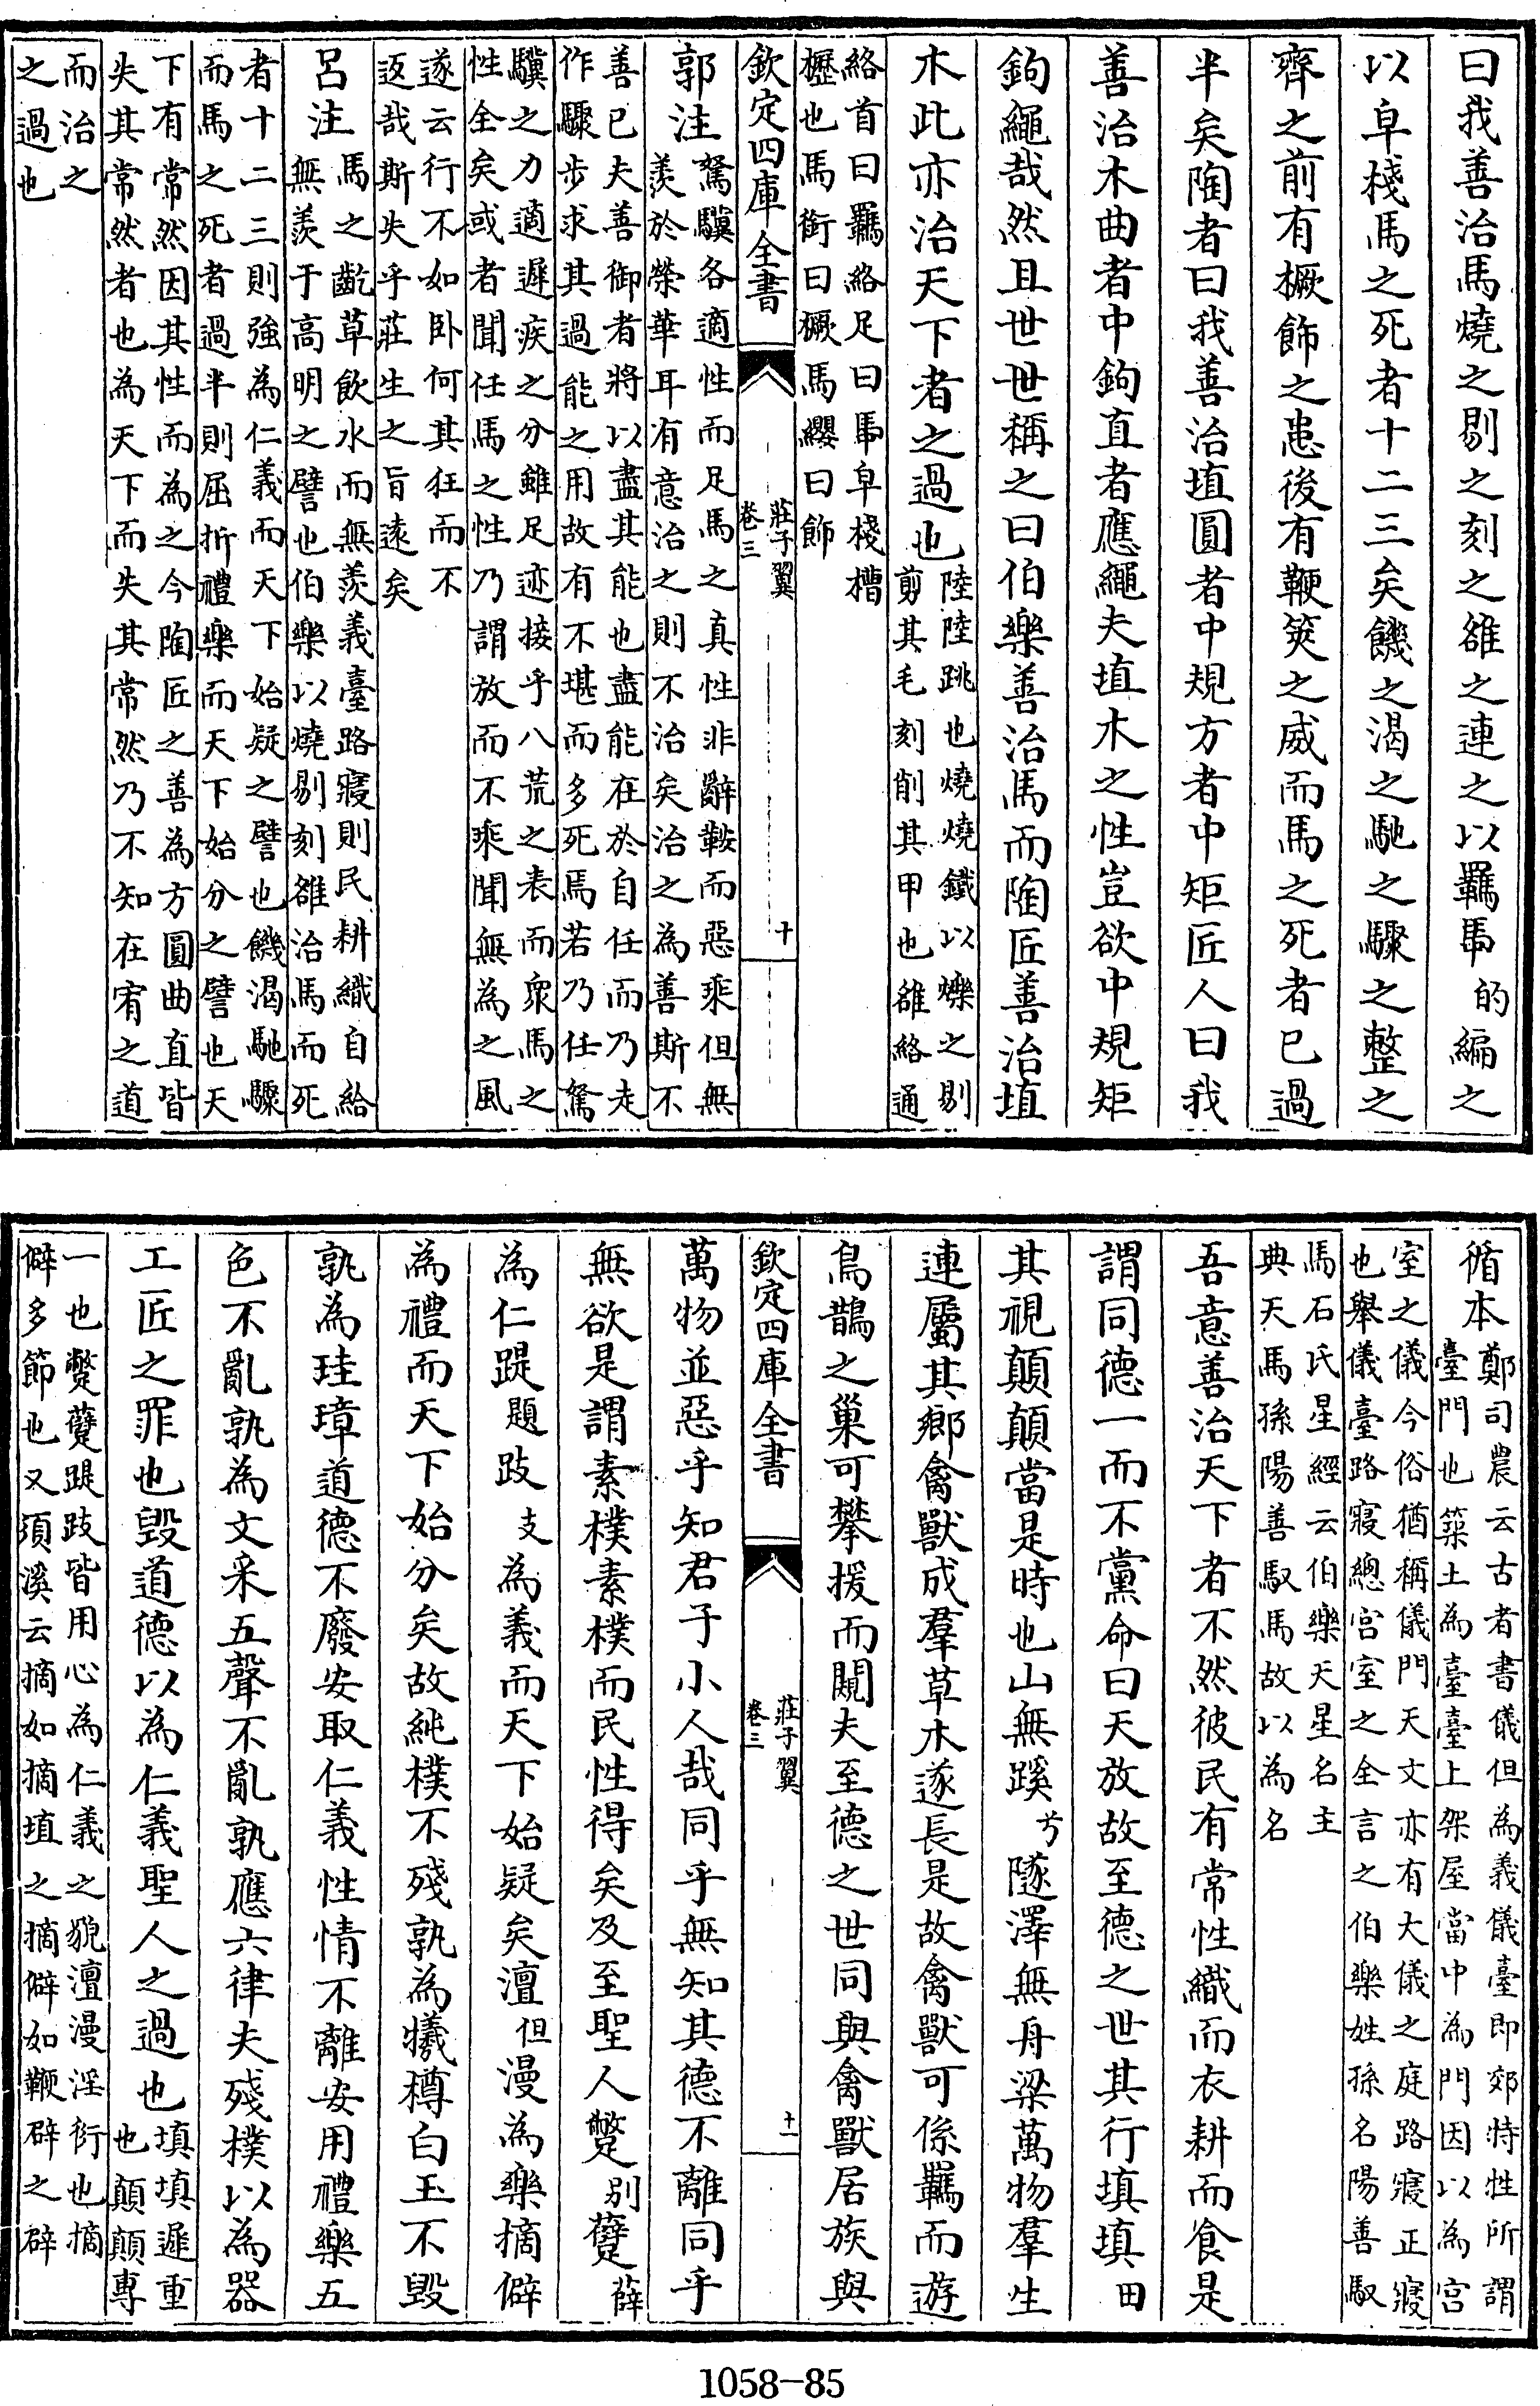 曰我善治馬燒之剔之刻之雒之連之以羈馽的編之
以皁棧馬之死者十二三矣饑之渴之馳之驟之整之
齊之前有橛飾之患後有鞭筴之威而馬之死者已過
半矣陶者曰我善治埴圓者中規方者中矩匠人曰我
善治木曲者中鉤直者應繩夫埴木之性豈欲中規矩
鉤繩哉然且世世稱之曰伯樂善治馬而陶匠善治埴
木此亦治天下者之過也
陸陸跳也燒燒鐵以爍之剔
剪其毛刻削其甲也雒絡通
絡首曰羈絡足曰馽皁棧槽
櫪也馬銜曰橛馬纓曰飾
欽定四庫全書
莊子翼
卷三
十
郭注
駑驥各適性而足馬之真性非辭鞍而惡乘但無
羨於榮華耳有意治之則不治矣治之為善斯不
善已夫善御者將以盡其能也盡能在於自任而乃走
作驟步求其過能之用故有不堪而多死焉若乃任駑
驥之力適遲疾之分雖足迹接乎八荒之表而衆馬之
性全矣或者聞任馬之性乃謂放而不乘聞無為之風
遂云行不如卧何其往而不
返哉斯失乎莊生之旨遠矣
呂注
馬之齕草飲水而無羨義臺路寢則民耕織自給
無羨于高明之譬也伯樂以燒剔刻雒治馬而死
者十二三則強為仁義而天下始疑之譬也饑渴馳驟
而馬之死者過半則屈折禮樂而天下始分之譬也天
下有常然因其性而為之今陶匠之善為方圓曲直皆
失其常然者也為天下而失其常然乃不知在宥之道
而治之
之過也
循本
鄭司農云古者書儀但為義儀臺即郊特性所謂
臺門也築土為臺臺上架屋當中為門因以為宫
室之儀今俗猶稱儀門天文亦有大儀之庭路寢正寢
也舉儀臺路寢總宫室之全言之伯樂姓孫名陽善馭
馬石氏星經云伯樂天星名主
典天馬孫陽善馭馬故以為名
吾意善治天下者不然彼民有常性織而衣耕而食是
謂同德一而不黨命曰天放故至德之世其行填填田
其視顛顛當是時也山無蹊兮隧澤無舟梁萬物羣生
連屬其鄉禽獸成羣草木遂長是故禽獸可係羈而遊
鳥鵲之巢可攀援而闚夫至德之世同與禽獸居族與
欽定四庫全書
莊子翼
卷三
十一
萬物並惡乎知君子小人哉同乎無知其德不離同乎
無欲是謂素樸素樸而民性得矣及至聖人蹩别躠薛
為仁踶題跂支為義而天下始疑矣澶但漫為樂摘僻
為禮而天下始分矣故純樸不殘孰為犧樽白玉不毀
孰為珪璋道德不廢安取仁義性情不離安用禮樂五
色不亂孰為文采五聲不亂孰應六律夫殘樸以為器
工匠之罪也毀道德以為仁義聖人之過也
填填遲重
也顛顛專
一也蹩躠踶跂皆用心為仁義之貌澶漫淫衍也摘
僻多節也又須溪云摘如摘埴之摘僻如鞭辟之辟
1058-85